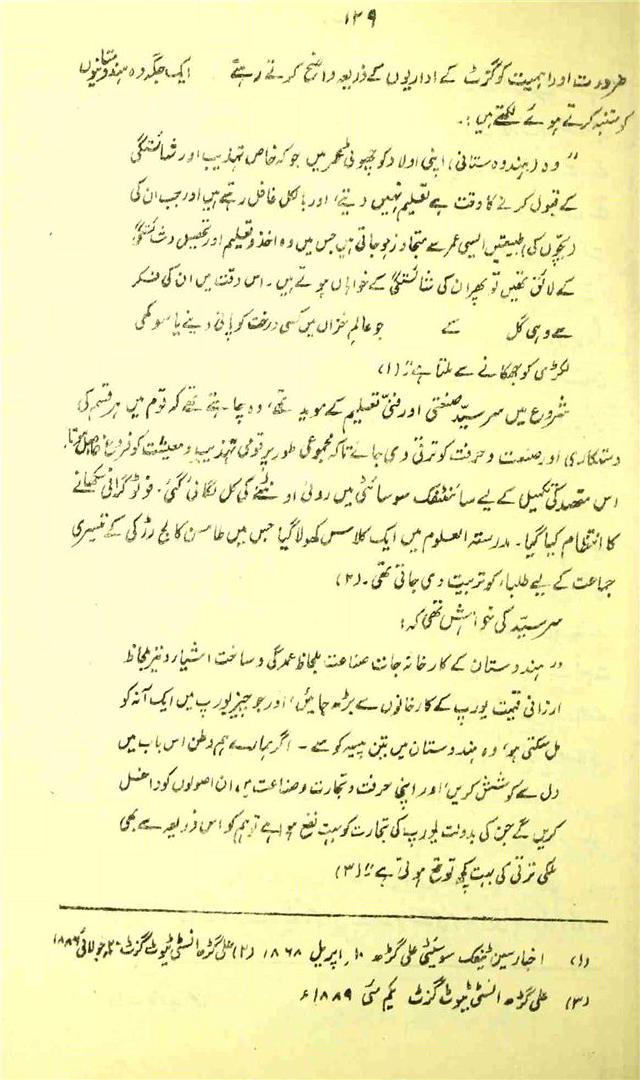 ۱۲۹
ضرورت اور اہمیت کو گزٹ کے اداریوں کے ذریعہ واضح کرتے رہے ایک جگہ وہ ہندوستانیوں
کو متنبہ کرتے ہوئے لکھتے ہیں :۔
" وہ (ہندوستانی) اپنی اولاد کو چھوٹی عمر میں جو کہ خاص تہذیب اور شائستگی
کے قبول کرنے کا وقت ہے تعلیم نہیں دیتے اور بالکل غافل رہتے ہیں اور جب ان کی
(بچوں کی) طبیعتیں ایسی عمر سے متجاوز ہو جاتی ہیں جس میں وہ اخذ و تعلیم اور تحصیل و شائستگی
کے لائق تھیں تو پھر ان کی شائستگی کے خواہاں ہوتے ہیں۔ اس وقت میں ان کی فکر
سے وہی گل ہے جو عالم خزاں میں کسی درخت کو پانی دینے یا سوکھی
لکڑی کو جھکانے سے ملتا ہے" (۱)
شروع میں سرسیّد صنعتی اور فنّی تعلیم کے موید تھے، وہ چاہتے تھے کہ قوم میں ہر قسم کی
دستکاری اور صنعت و حرفت کو ترقی دی جائے تاکہ مجموعی طور پر قومی تہذیب و معیشت کو فروغ حاصل ہوتا۔
اس مقصد کی تکمیل کے لیے سائنٹفک سوسائٹی میں روئی اوٹنے کی کل لگائی گئی۔ فوٹوگرافی سکھانے
کا انتظام کیا گیا۔ مدرستہ العلوم میں ایک کلاس کھولا گیا جس میں طامسن کالج رڑکی کے تیسری
جماعت کے لیے طلباء کو تربیت دی جاتی تھی۔ (۲)
سرسیّد کی خواہش تھی کہ :
" ہندوستان کے کارخانہ جات صناعت بلحاظ عمدگی و ساخت اشیاء و نیز بلحاظ
ارزانی قیمت یورپ کے کارخانوں سے بڑھ جائیں، اور جو چیز یورپ میں ایک آنہ کو
مل سکتی ہو، وہ ہندوستان میں تین پیسہ کو ملے۔ اگر ہمارے ہم وطن اس باب میں
دل سے کوشش کریں اور اپنی حرفت و تجارت و صناعت میں ان اصولوں کو داخل
کریں گے جن کی بدولت یورپ کی تجارت کو بہت نفع ہوا ہے تو ہم کو اس ذریعہ سے بھی
ملکی ترقی کی بہت کچھ توقع ہوتی ہے" (۳)
(۱) اخبار سین ٹیفک سوسیٹی علی گڑھ ۱۰ اپریل ۱۸۶۸ (۲) علی گڑھ انسٹی ٹیوٹ گزٹ جولائی ۱۸۸۶
(۳) علی گڑھ انسٹی ٹیوٹ گزٹ یکم مئی ۱۸۸۹ء